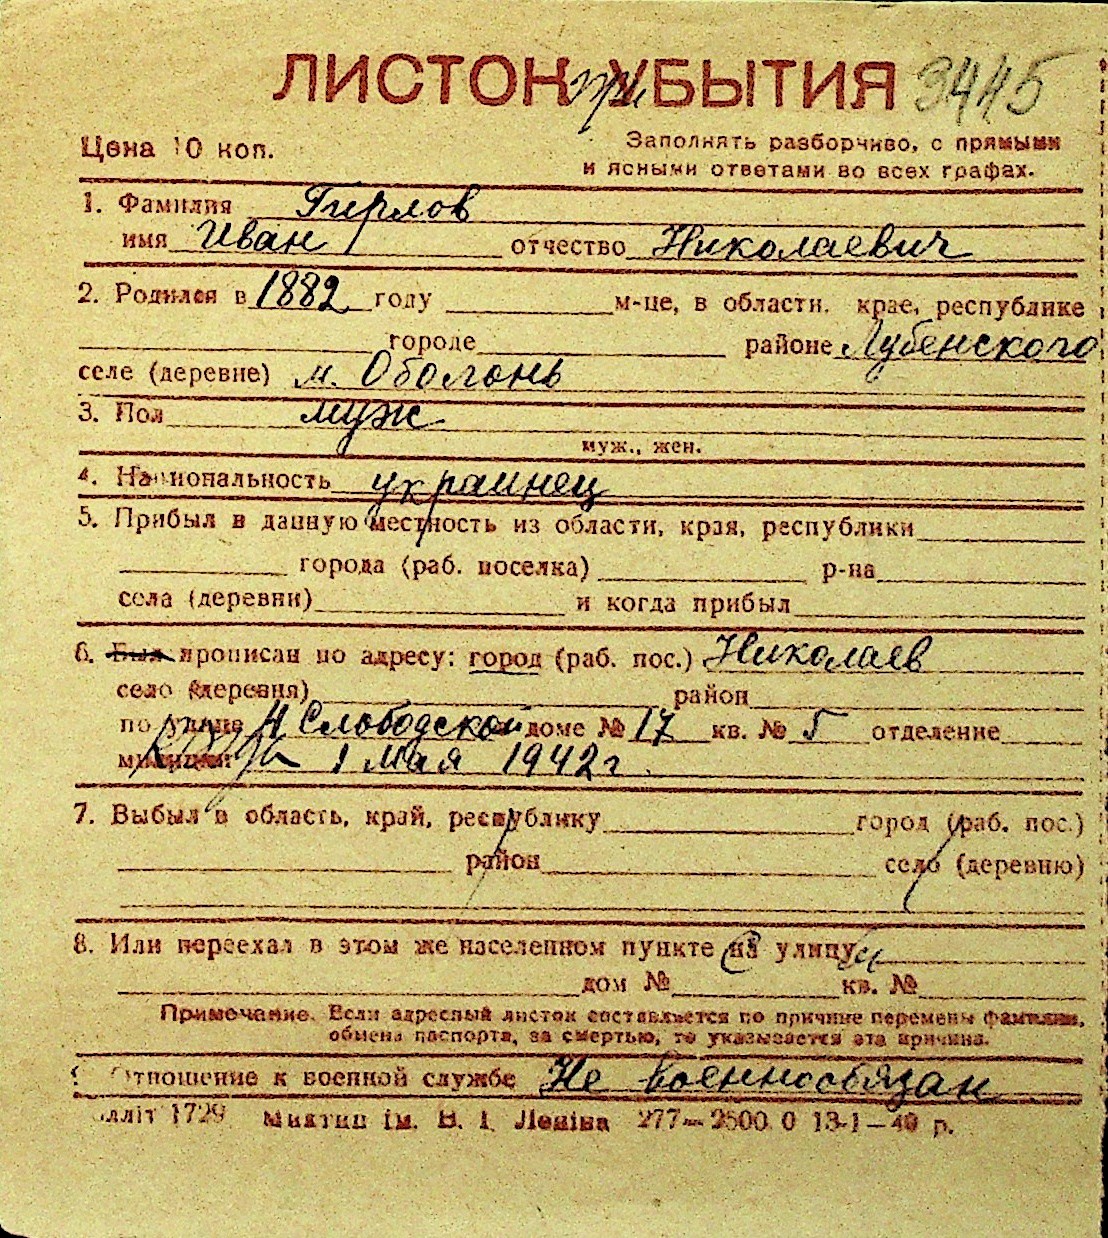 ЛИСТОК при УБЫТИЯ 3445
Цена 10 коп.
Заполнять разборчиво, с прямыми
и ясными ответами во всех графах.
1. Фамилия Гирлов
имя Иван отчество Николаевич
2. Родился в 1882 году м-це, в области, крае, республике
городе районе Лубенского
селе (деревне) м. Оболонь
3. Пол муж
муж., жен.
4. Национальность украинец
5. Прибыл в данную местность из области, края, республики
города (раб. поселка) р-на
села (деревни) и когда прибыл
6. Был прописан по адресу: город (раб. пос.) Николаев
село (деревня) район
по улице Н Слободской доме № 17 кв. № 5 отделение
милиции 1 мая 1942 г.
7. Выбыл в область, край, республику город (раб. пос.)
район село (деревню)
8. Или переехал в этом же населенном пункте на улицу
дом № кв. №
Примечание. Если адресный листок составляется по причине перемены фамилии,
обмена паспорта, за смертью, то указывается эта причина.
Отношение к военной службе Не военнообязан
лліт 1729 Миктип ім. В. І. Леніна 277—2500.0 13-1—40 р.